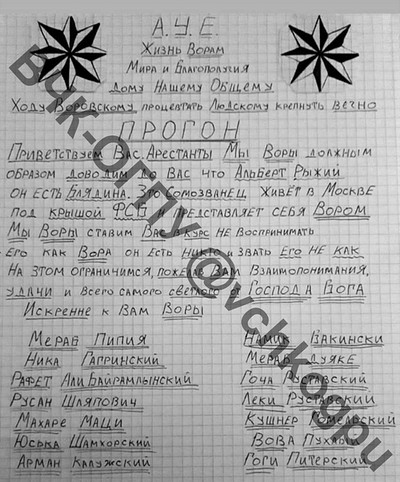 А.У.Е.
Жизнь Ворам
Мира и Благополучия
Дому Нашему Общему
Ходу Воровскому процветать Людскому крепнуть вечно
ПРОГОН
Приветствуем Вас Арестанты Мы Воры должным
образом доводим до Вас что Альберт Рыжий
он есть Блядина. Это Сомозванец живёт в Москве
под крышой ФСБ и представляет себя Вором
Мы Воры ставим Вас в курс не воспринимать
его как Вора он есть Никто и звать его не как
На этом ограничимся, пожелав Вам Взаимопонимания,
удачи и всего самого светлого от Господа Бога
Искренне к Вам Воры
Мераб Пипия
Ника Гагринский
Рафет Али Байрамлынский
Русан Шляпович
Махаре Маци
Юська Шамхорский
Арман Калужский
Намик Бакински
Мераб Дуяке
Гоча Руставский
Леки Руставский
Кушнер Гомельский
Вова Пухлый
Гоги Питерский
ВЧК-ОГПУ @vchkogpu